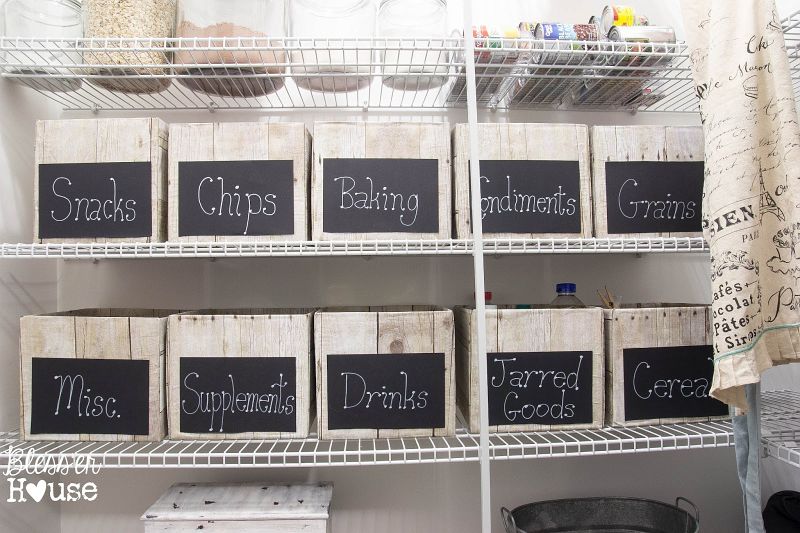 Snacks
Chips
Baking
Condiments
Grains
Misc.
Supplements
Drinks
Jarred
Goods
Cereal
Cafés
Chocolat
Pâtes
et Sirops
Bless'er
House